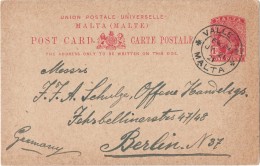 UNION POSTALE UNIVERSELLE
MALTA (MALTE)
POST CARD - CARTE POSTALE
THE ADDRESS ONLY TO BE WRITTEN ON THIS SIDE.
VALLETTA
MALTA
Messers
F. F. A. Schulze, Offene Handelsgs.
Fehrbellinerstrasse 47/48
Berlin. N37
Germany